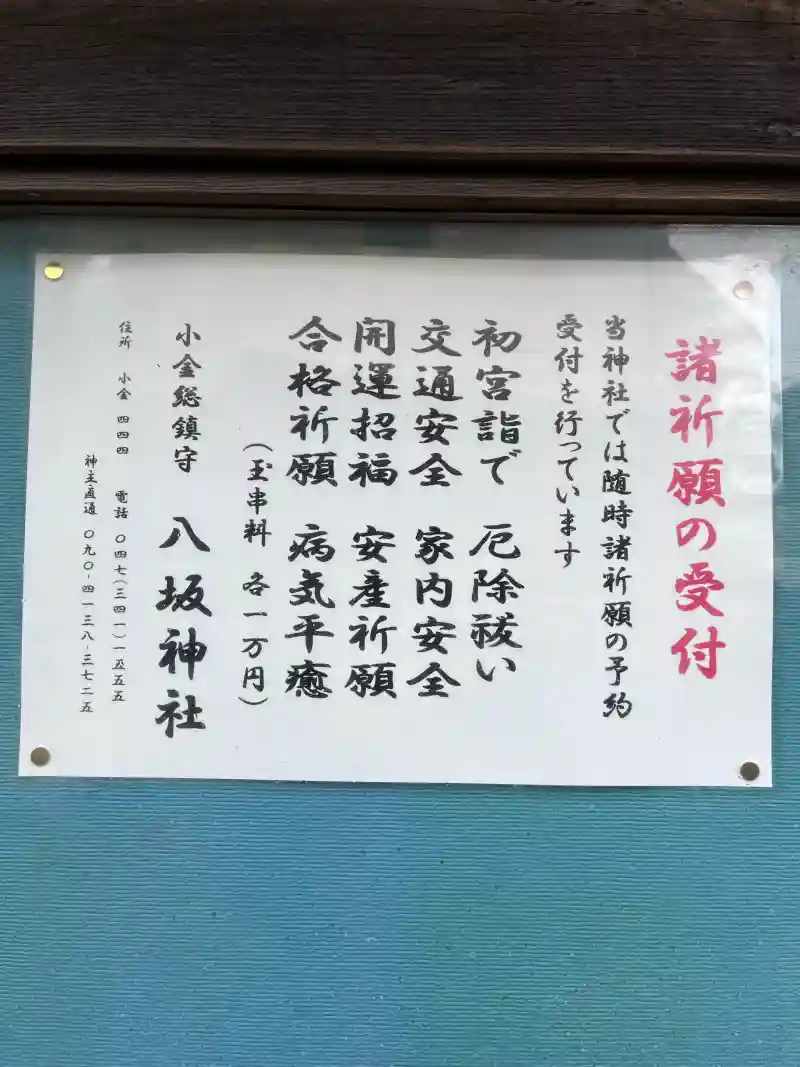 諸祈願の受付
当神社では随時諸祈願の予約
受付を行っています
初宮詣で 厄除祓い
交通安全 家内安全
開運招福 安産祈願
合格祈願 病気平癒
（玉串料 各一万円）
小金総鎮守 八坂神社
住所 小金 四四四 電話 〇四七（三四一）一五五五
神主直通 〇九〇-四一三八-三七二五